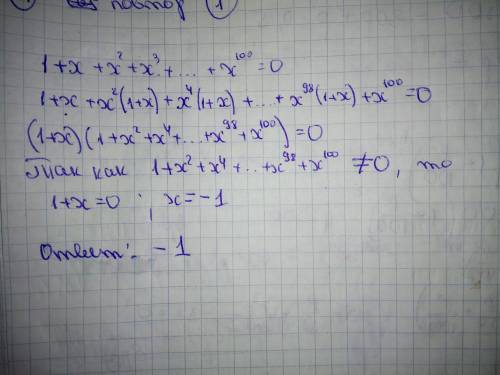 повтор 1
1+x+x²+x³+...+x¹⁰⁰=0
1+x+x²(1+x)+x⁴(1+x)+...+x⁹⁸(1+x)+x¹⁰⁰=0
(1+x)(1+x²+x⁴+...+x⁹⁸+x¹⁰⁰)=0
Так как 1+x²+x⁴+...+x⁹⁸+x¹⁰⁰≠0, то
1+x=0; x=-1
Ответ: -1